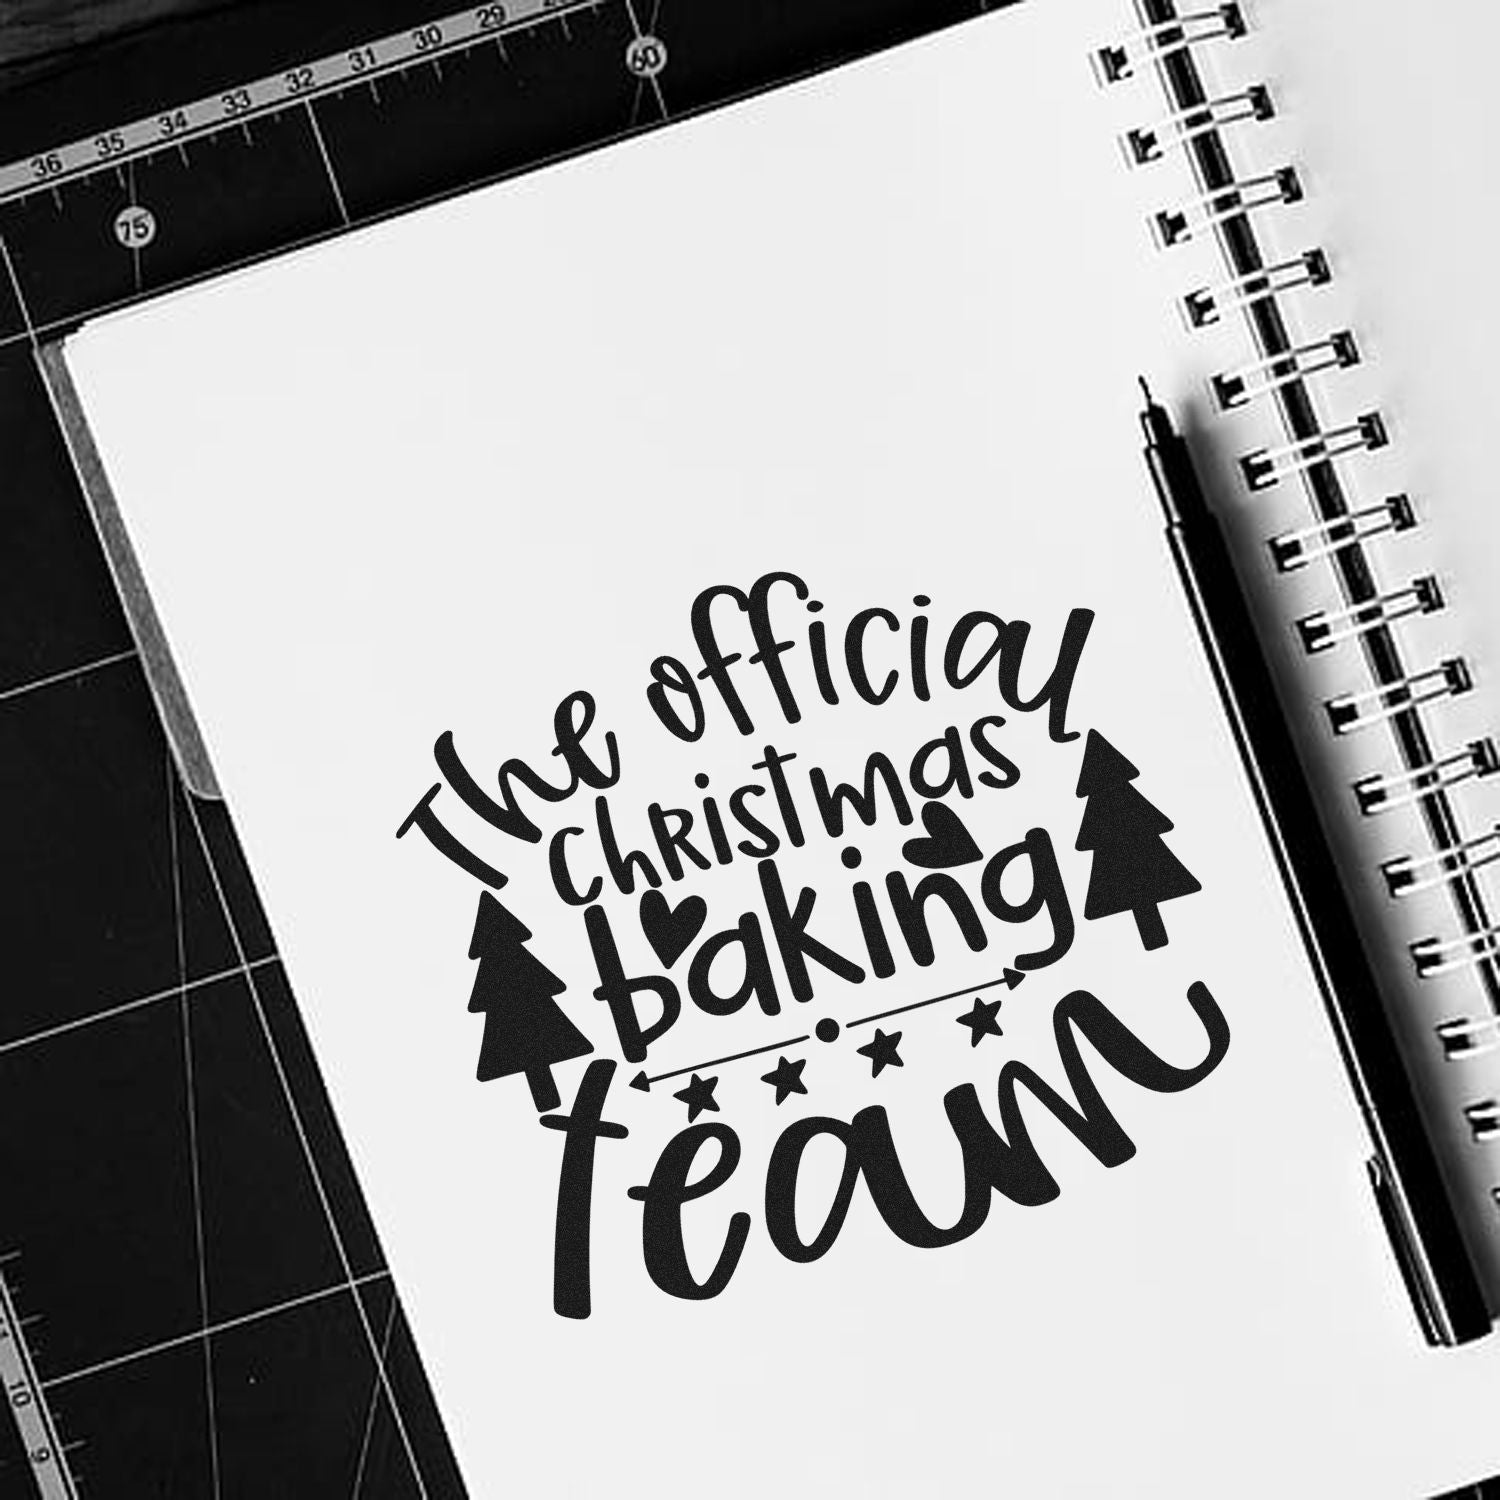 36 35 34 33 32 31 30 29
75 60
The official
Christmas
baking
Team
10
9